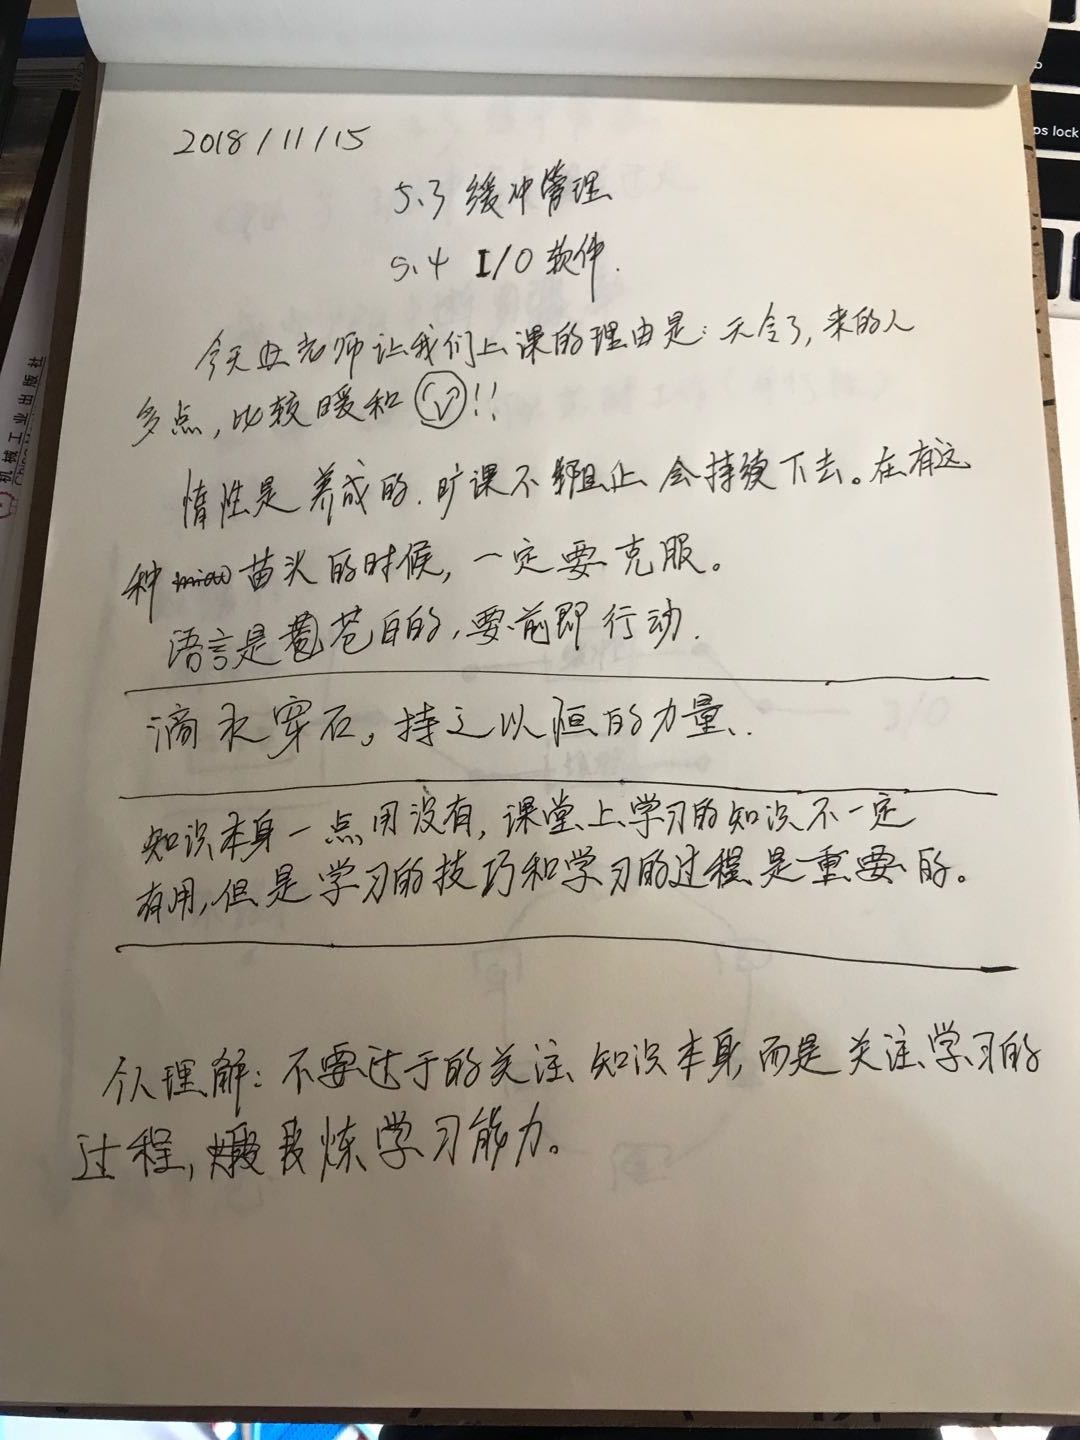 2018/11/15
5.3 缓冲管理
5.4 I/O 软件.
今天 老师让我们上课的理由是: 天冷了, 来的人
多点, 比较暖和 !!
惰性是养成的. 旷课不阻止 会持续下去。在有这
种 苗头的时候, 一定要克服。
语言是苍白的, 要 即行动.
滴水穿石, 持之以恒的力量..
知识本身一点用没有, 课堂上学习的知识不一定
有用, 但是学习的技巧和学习的过程是重要的。
个人理解: 不要过于的关注 知识本身, 而是关注学习的
过程, 炼学习能力。
机械工业出版社
ps lock